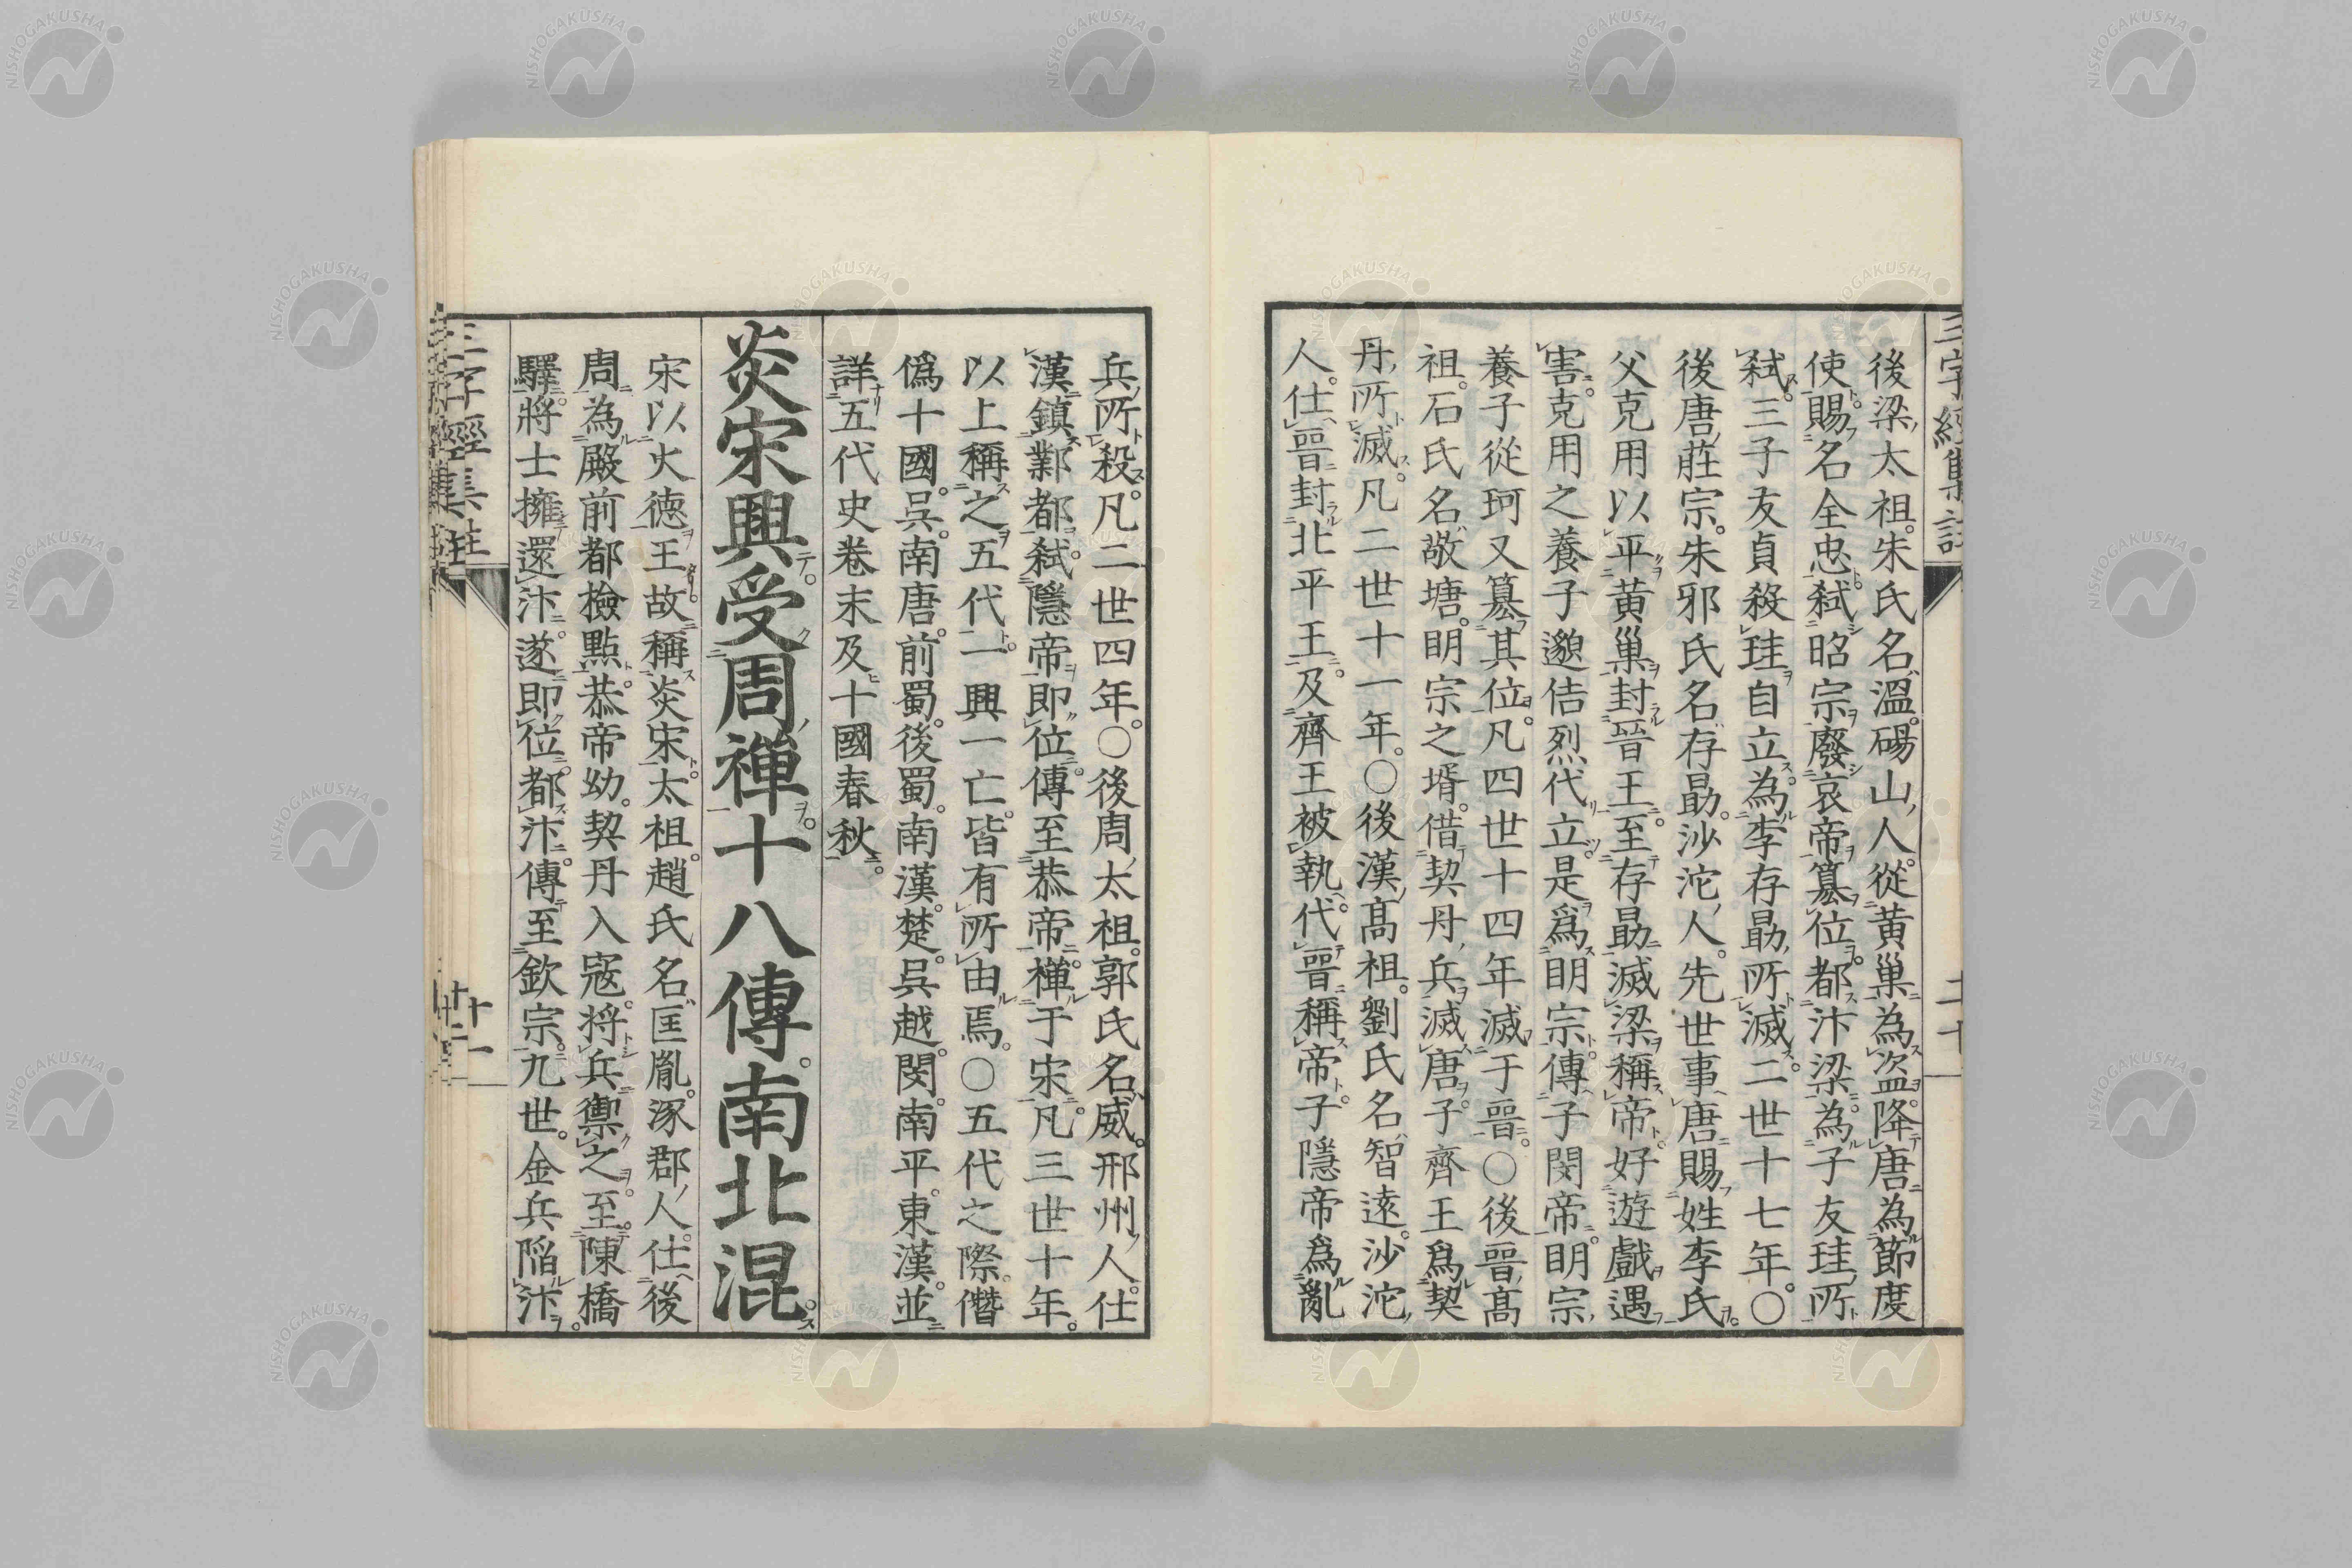 後梁太祖。朱氏名溫。碭山人。從黃巢為盜。降唐為節度
使。賜名全忠。弒昭宗廢哀帝篡位。都汴梁。為子友珪所
弒。三子友貞殺珪自立。為李存勗所滅。二世十七年。〇
後唐莊宗。朱邪氏名存勗。沙沱人。先世事唐賜姓李氏。
父克用以平黃巢封晉王。至存勗滅梁稱帝。好遊戲遇
害。克用之養子邈佶烈代立。是爲明宗。傳子閔帝。明宗
養子從珂又篡其位。凡四世十四年滅于晉。〇後晉高
祖。石氏名敬塘。明宗之壻。借契丹兵滅唐。子齊王爲契
丹所滅。凡二世十一年。〇後漢高祖。劉氏名智遠。沙沱
人。仕晉封北平王。及齊王被執。代晉稱帝。子隱帝爲亂
兵所殺。凡二世四年。〇後周太祖。郭氏名威。邢州人。仕
漢鎮鄴都。弒隱帝即位。傳至恭帝。禪于宋。凡三世十年。
以上稱之五代。一興一亡。皆有所由焉。〇五代之際。僭
僞十國。吳。南唐。前蜀。後蜀。南漢。楚。吳越。閔。南平。東漢。並
詳五代史卷末及十國春秋。
炎宋興。受周禪。十八傳。南北混。
宋以火德王。故稱炎宋。太祖。趙氏名匡胤。涿郡人。仕後
周為殿前都檢點。恭帝幼。契丹入寇。将兵禦之。至陳橋
驛。將士擁還汴。遂即位。都汴。傳至欽宗。九世。金兵陷汴。
三字經集註